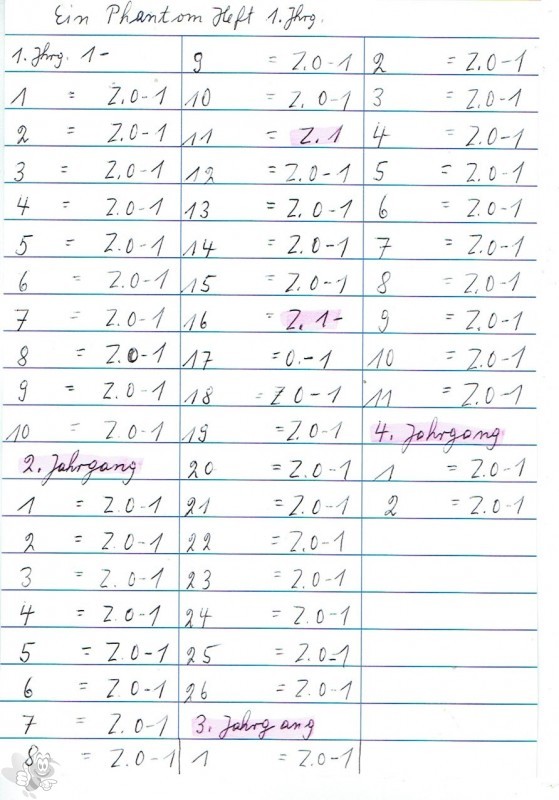 Ein Phantom Heft 1. Jhrg.
1. Jhrg. 1-
1 = Z.0-1
2 = Z.0-1
3 = Z.0-1
4 = Z.0-1
5 = Z.0-1
6 = Z.0-1
7 = Z.0-1
8 = Z.0-1
9 = Z.0-1
10 = Z.0-1
2. Jahrgang
1 = Z.0-1
2 = Z.0-1
3 = Z.0-1
4 = Z.0-1
5 = Z.0-1
6 = Z.0-1
7 = Z.0-1
8 = Z.0-1
9 = Z.0-1
10 = Z.0-1
11 = Z.1
12 = Z.0-1
13 = Z.0-1
14 = Z.0-1
15 = Z.0-1
16 = Z.1-
17 = 0.-1
18 = Z0-1
19 = Z.0-1
20 = Z.0-1
21 = Z.0-1
22 = Z.0-1
23 = Z.0-1
24 = Z.0-1
25 = Z.0-1
26 = Z.0-1
3. Jahrgang
1 = Z.0-1
2 = Z.0-1
3 = Z.0-1
4 = Z.0-1
5 = Z.0-1
6 = Z.0-1
7 = Z.0-1
8 = Z.0-1
9 = Z.0-1
10 = Z.0-1
11 = Z.0-1
4. Jahrgang
1 = Z.0-1
2 = Z.0-1